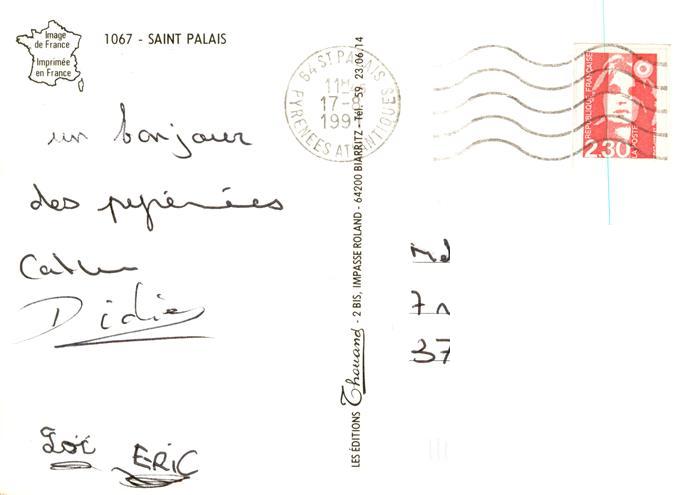 Image
de France
Imprimée
en France
1067 - SAINT PALAIS
64 ST PALAIS
11H
17-8
199
PYRENEES ATLANTIQUES
REPUBLIQUE FRANÇAISE
2,30
LA POSTE
un bonjour
des pyrénées
Didier
Loïc ERIC
LES EDITIONS Thouand - 2 BIS, IMPASSE ROLAND - 64200 BIARRITZ - Tél. 59. 23.06.14
Md
7
37